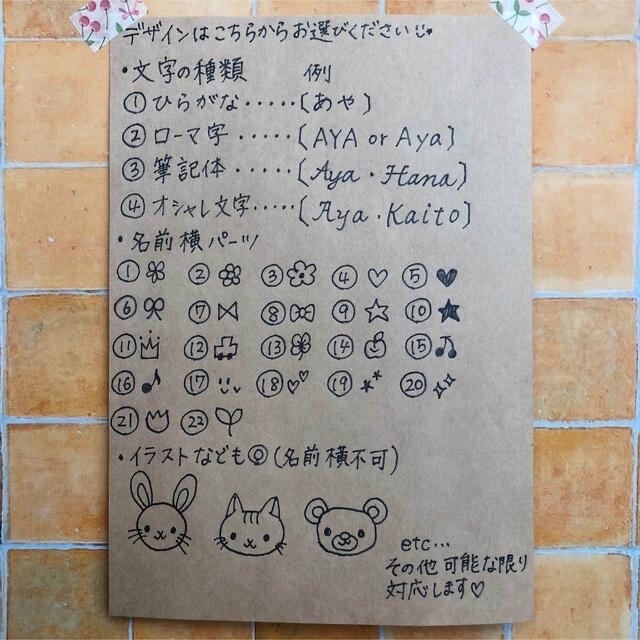 デザインはこちらからお選びください
・文字の種類 例
①ひらがな・・・・・〔あや〕
②ローマ字・・・・・〔AYA or Aya〕
③筆記体・・・・・〔Aya・Hana〕
④オシャレ文字・・・・・〔Aya・Kaito〕
・名前横パーツ
① ② ③ ④♡ ⑤♥
⑥ ⑦ ⑧ ⑨☆ ⑩★
⑪ ⑫ ⑬ ⑭ ⑮♫
⑯♪ ⑰ ⑱ ⑲ ⑳
㉑ ㉒
・イラストなども◎(名前横不可)
etc…
その他可能な限り
対応します♡